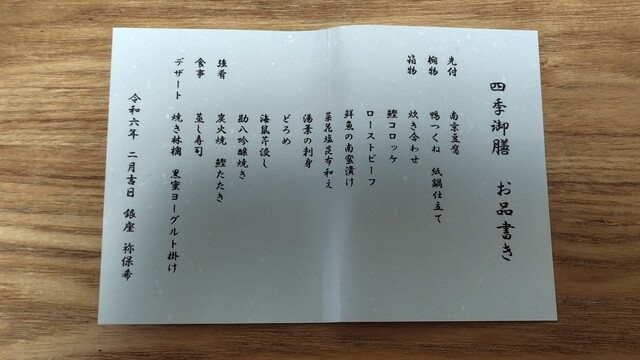 四季御膳　お品書き
先付　南京豆腐
椀物　鴨つくね　紙鍋仕立て
箱物　炊き合わせ
鰹コロッケ
ローストビーフ
鮮魚の南蛮漬け
菜花塩昆布和え
湯葉の刺身
どろめ
海鼠芹浸し
勘八吟醸焼き
強肴　炭火焼　鰹たたき
食事　蒸し寿司
デザート　焼き林檎　黒蜜ヨーグルト掛け
令和六年　二月吉日　銀座　祢保希